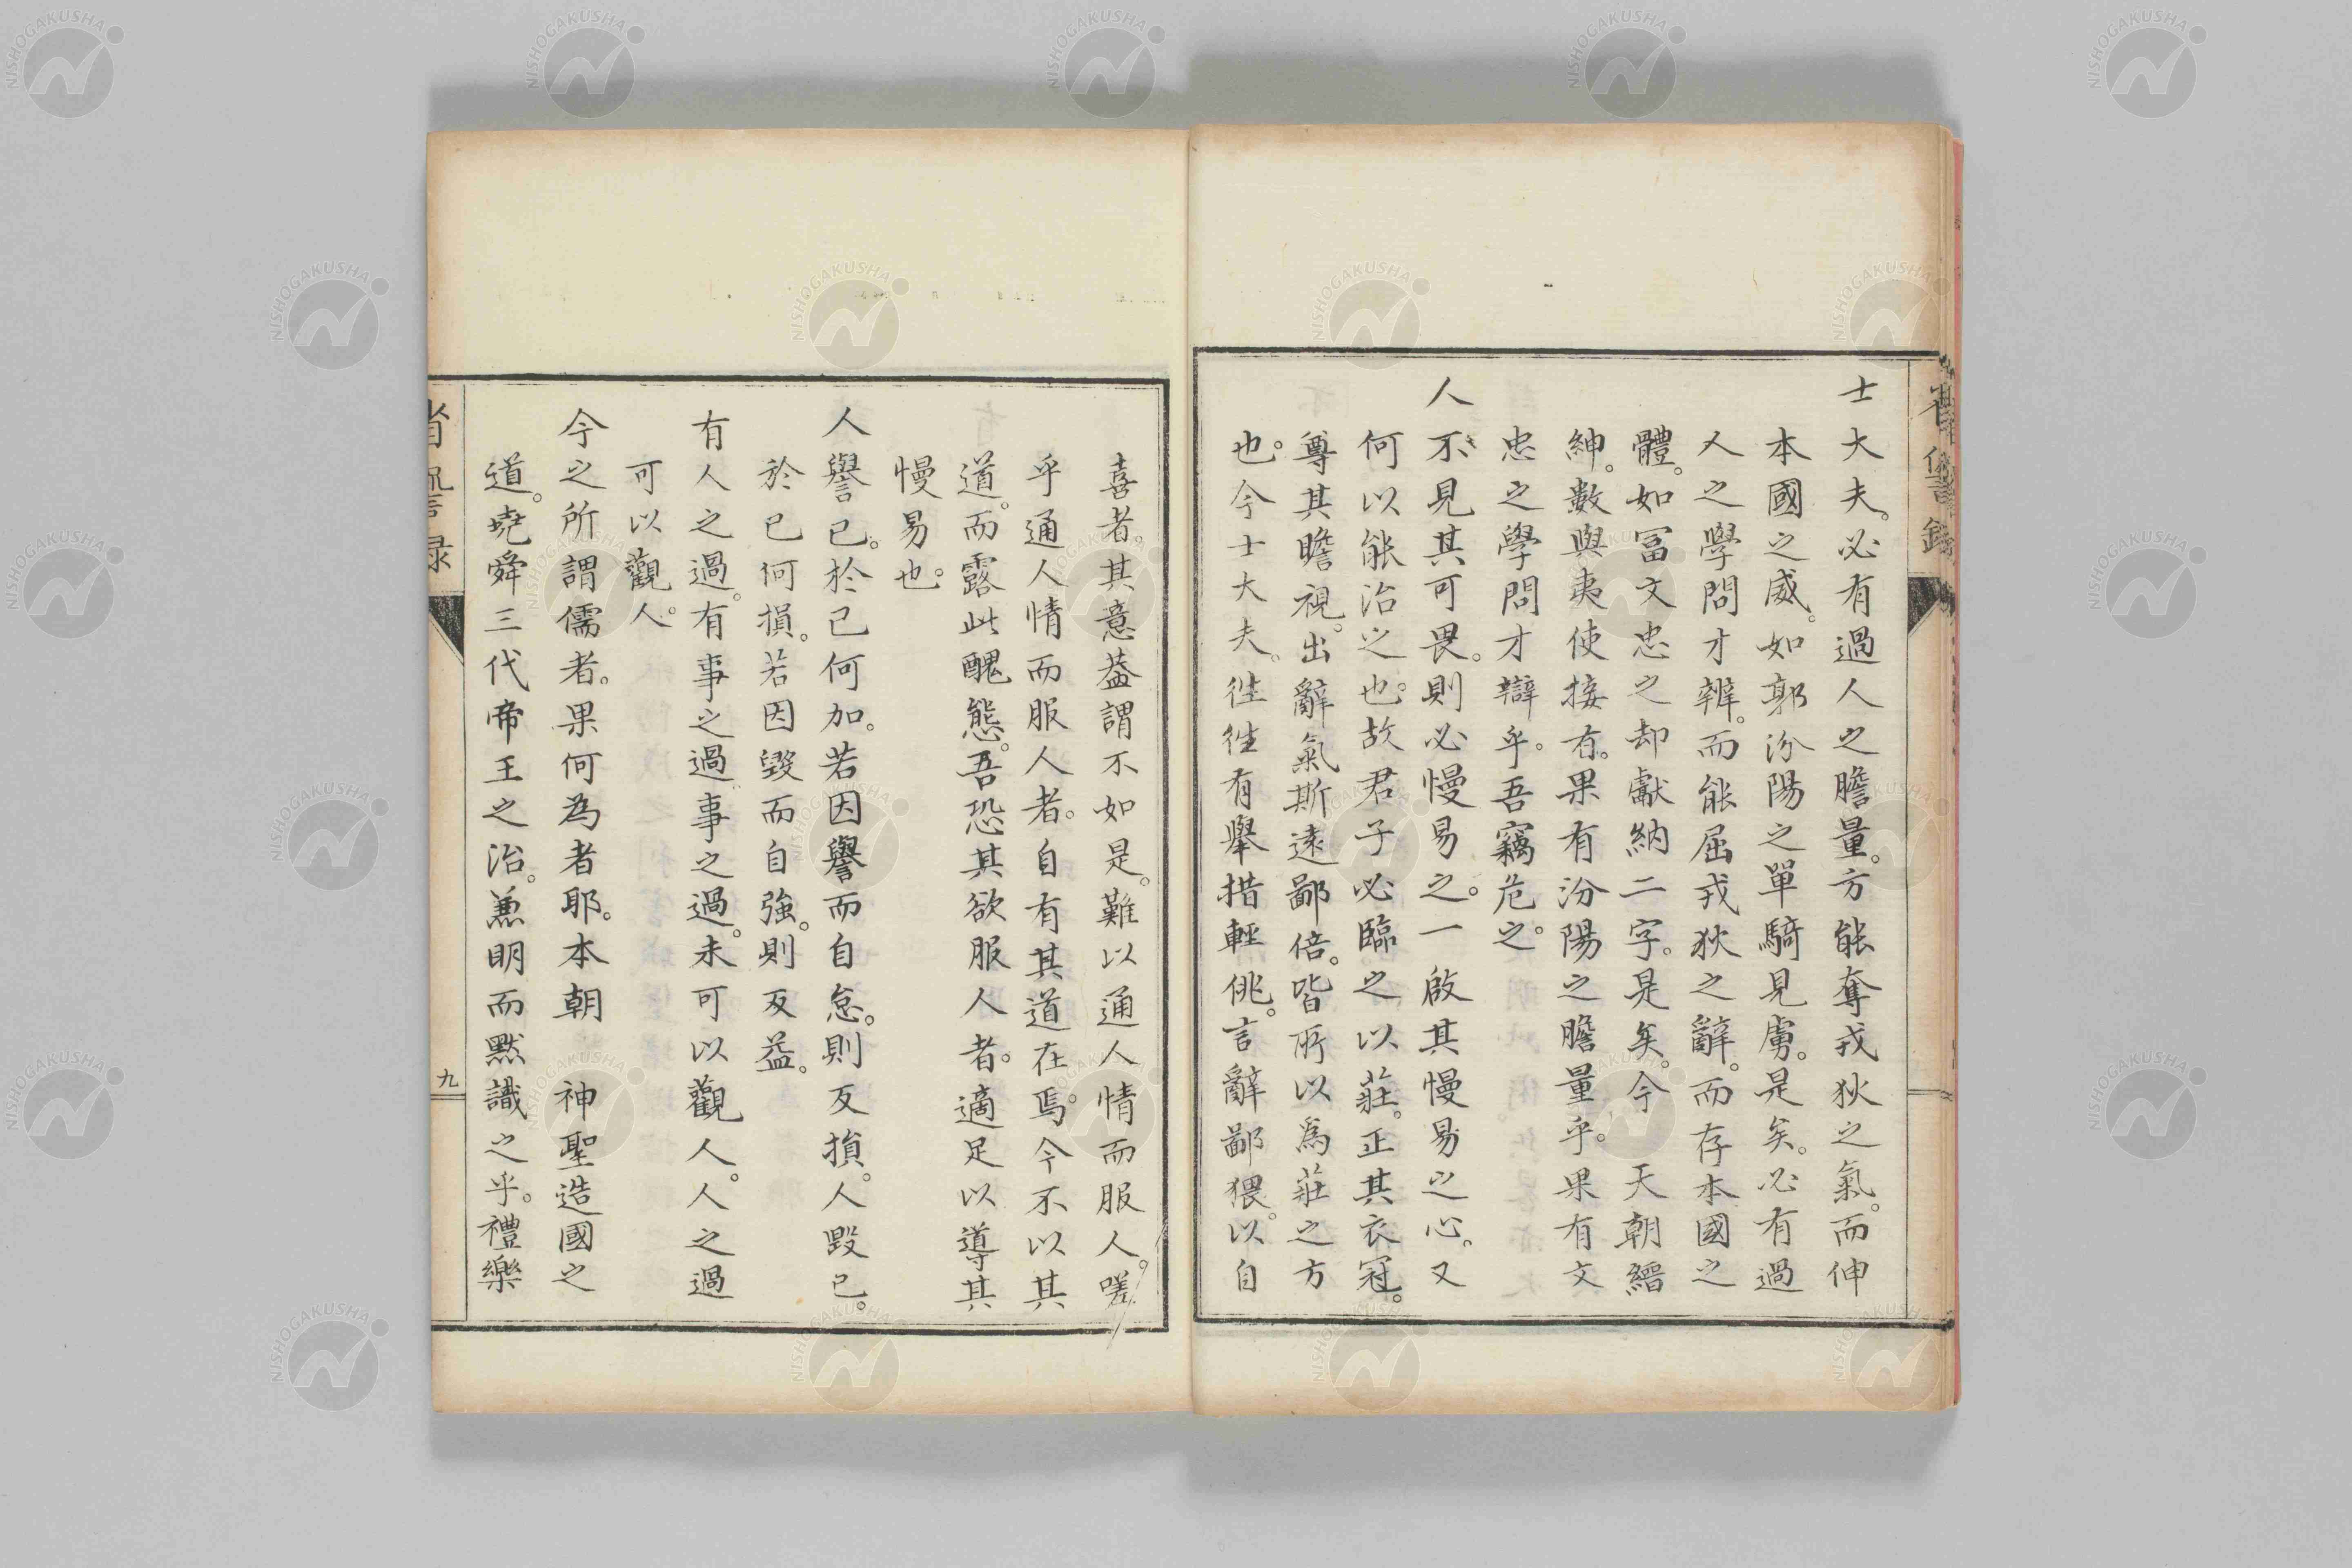 士大夫。必有過人之膽量。方能奪戎狄之氣。而伸
本國之威。如郭汾陽之單騎見虜。是矣。必有過
人之學問才辨。而能屈戎狄之辭。而存本國之
體。如冨文忠之却獻納二字。是矣。今 天朝縉
紳。數與夷使接有。果有汾陽之膽量乎。果有文
忠之學問才辯乎。吾竊危之。
人不見其可畏。則必慢易之。一啟其慢易之心。又
何以能治之也。故君子必臨之以莊。正其衣冠。
尊其瞻視。出辭氣斯遠鄙倍。皆所以爲莊之方
也。今士大夫。徃徃有舉措輕佻。言辭鄙猥。以自
喜者。其意葢謂不如是。難以通人情而服人。嗟
乎通人情而服人者。自有其道在焉。今不以其
道。而露此醜態。吾恐其欲服人者。適足以導其
慢易也。
人譽己。於己何加。若因譽而自怠。則反損。人毀己。
於己何損。若因毀而自強。則反益。
有人之過。有事之過事之過。未可以觀人。人之過
可以觀人。
今之所謂儒者。果何為者耶。本朝 神聖造國之
道。堯舜三代帝王之治。兼明而黙識之乎。禮樂
省諐録
九
NISHOGAKUSHA